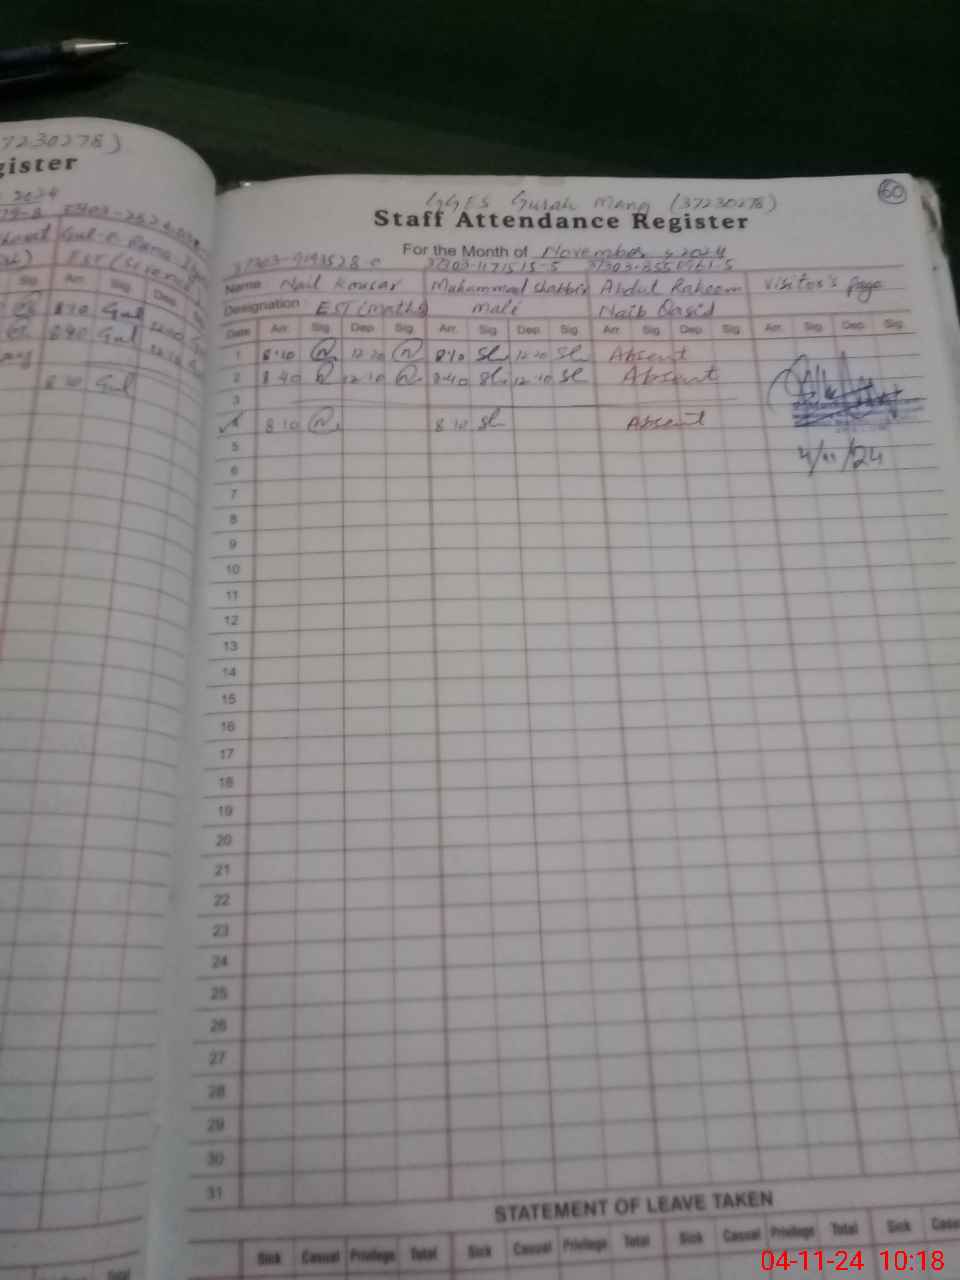 7230278)
gister
2024
Sig Arr. Sig Dep.
8 10 Gul
8 40 Gul
8 10 Gul
60
GGES Gurah Mang (37230278)
Staff Attendance Register
For the Month of November, 2024
37303-1171515-5
Name Nail Kousar Muhammad Shabbir Abdul Raheem Visitor's page
Designation EST (maths) mali Naib Qasid
Date Arr. Sig Dep. Sig. Arr. Sig. Dep. Sig. Arr. Sig. Dep. Sig. Arr. Sig. Dep. Sig.
1 8:10 12 20 8 10 Sl 12 20 Sl Absent
2 8 40 12 10 8 40 Sl 12 10 Sl Absent
3
4 8 10 8 10 Sl Absent
4/11/24
5
6
7
8
9
10
11
12
13
14
15
16
17
18
19
20
21
22
23
24
25
26
27
28
29
30
31
STATEMENT OF LEAVE TAKEN
Sick Casual Privilege Total Sick Casual Privilege Total Sick Casual Privilege Total Sick Casu
Total
04-11-24 10:18